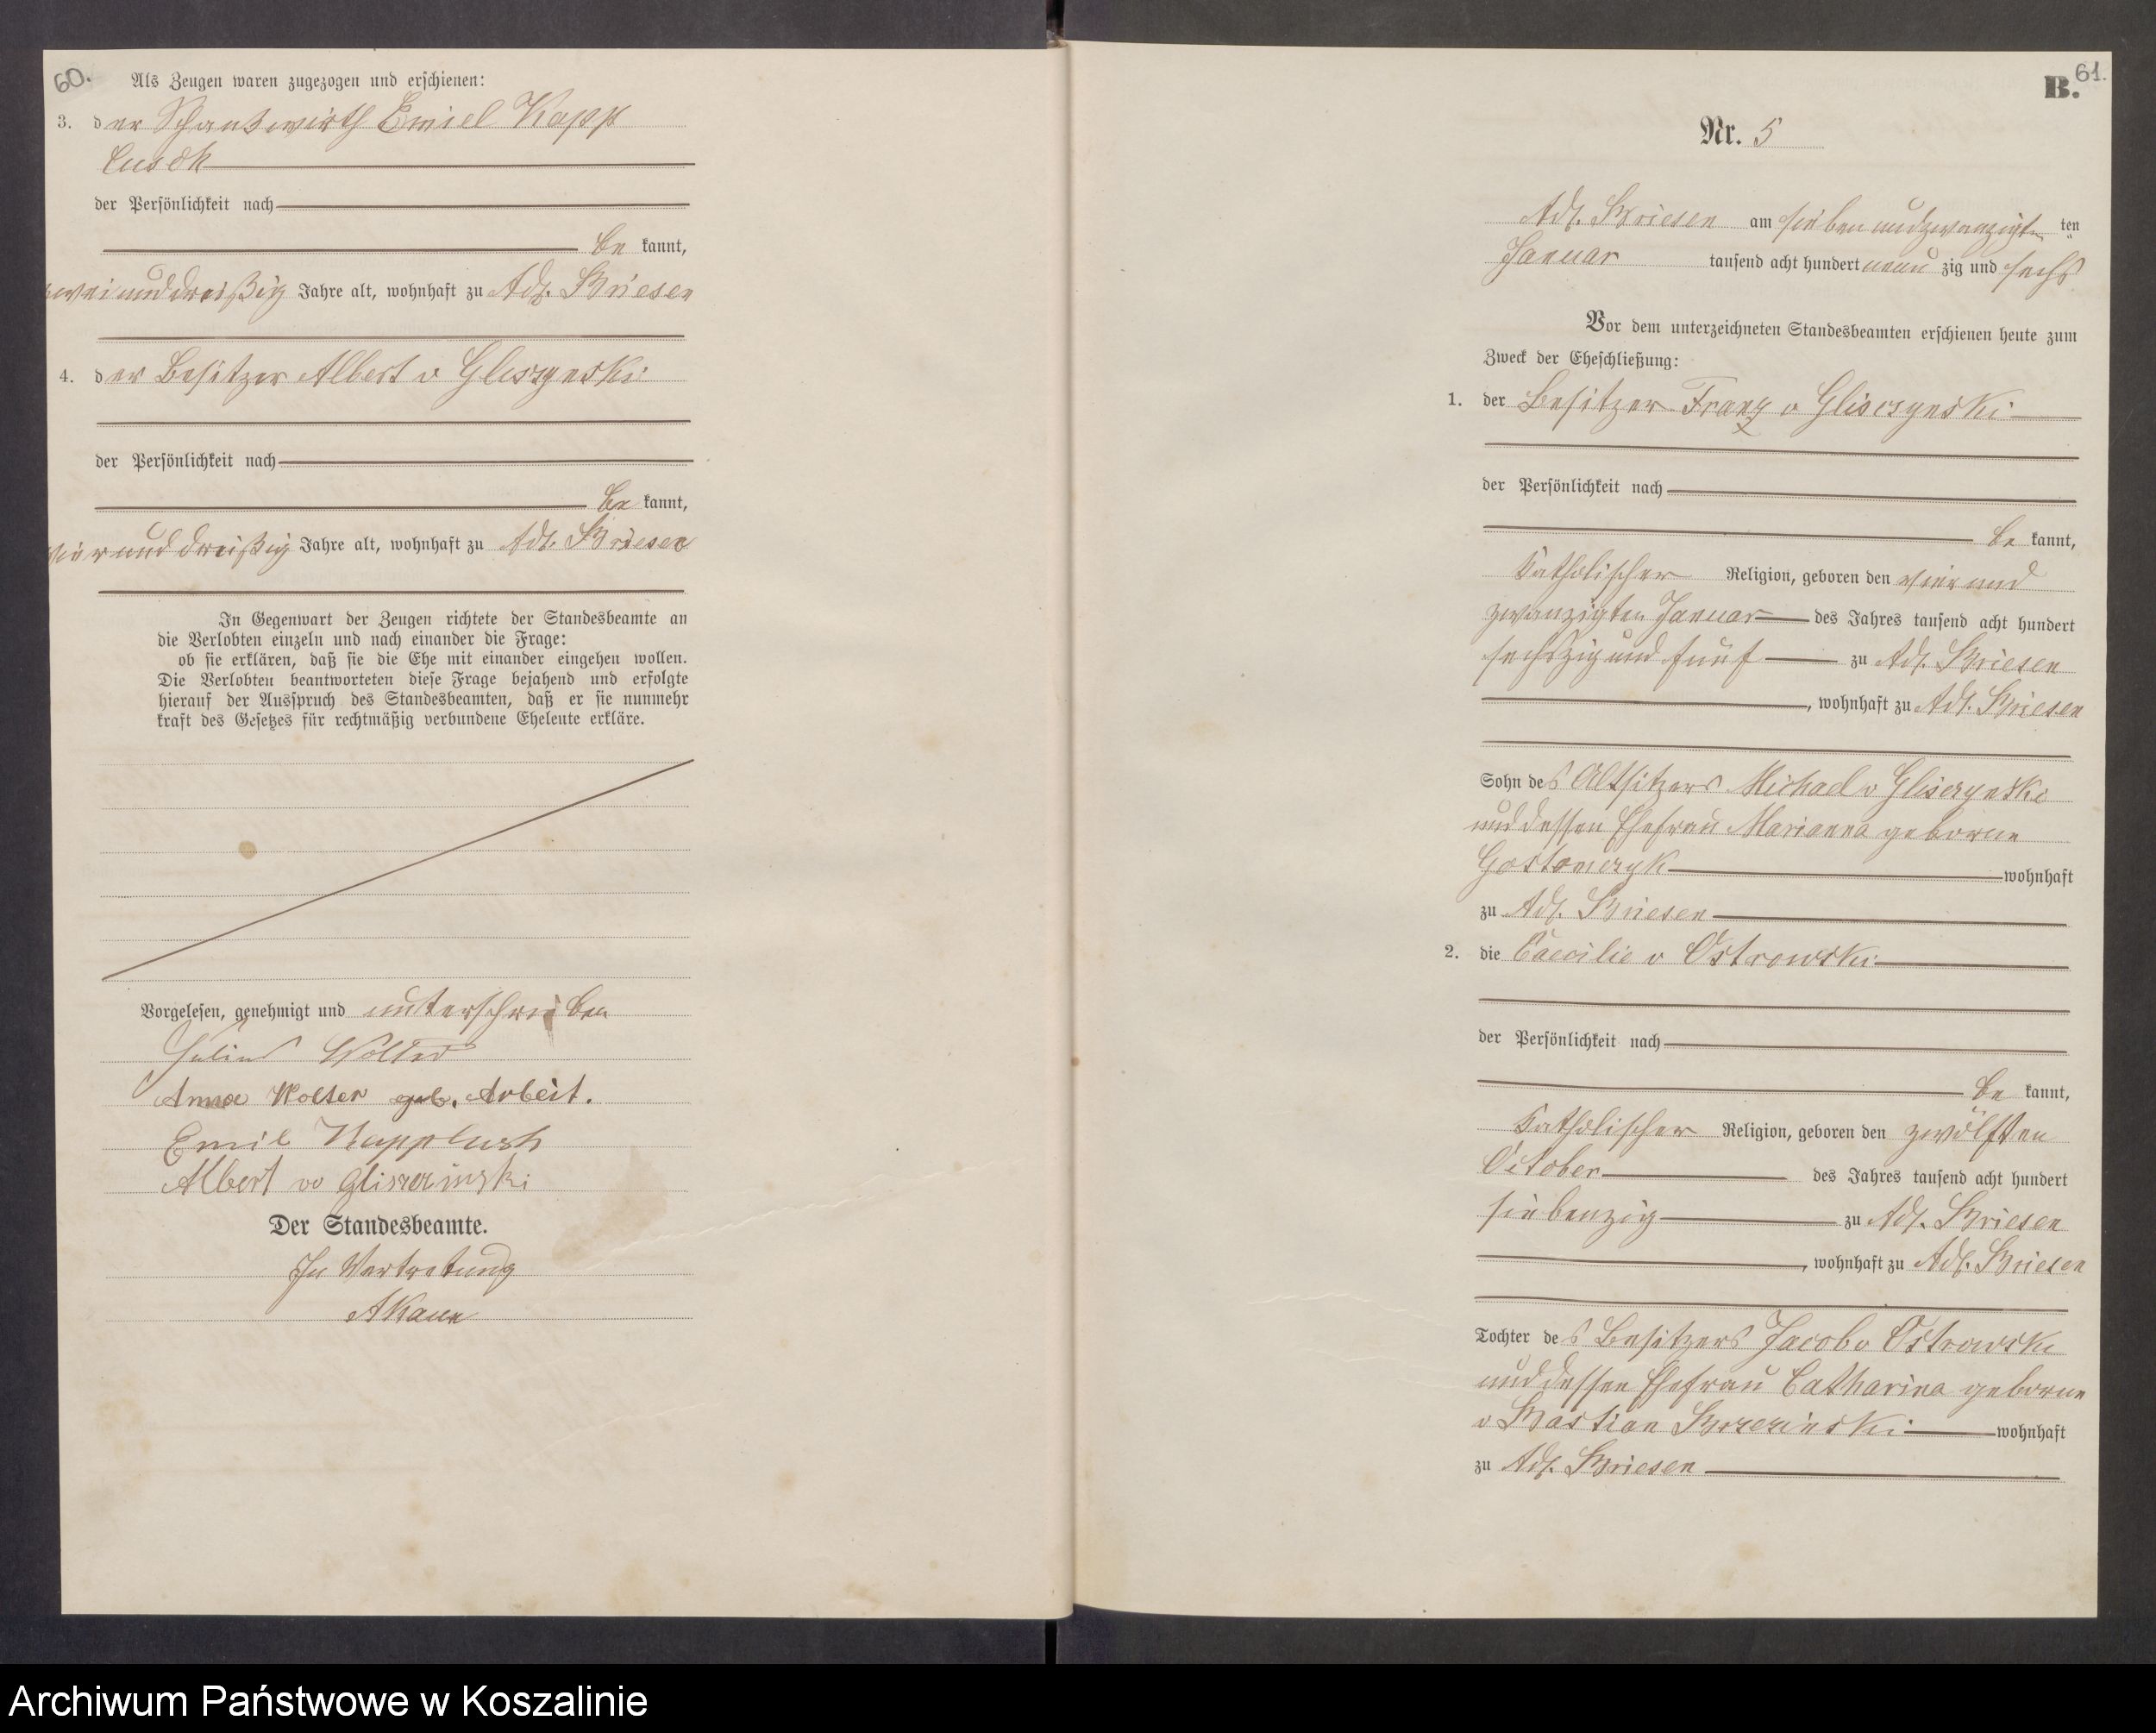 60.
Als Zeugen waren zugezogen und erschienen:
3. der Schankwirth Emiel Kapp
Lusch
der Persönlichkeit nach
be kannt,
zweiunddreißig Jahre alt, wohnhaft zu Adl. Briesen
4. der Besitzer Albert v Gliszynski
der Persönlichkeit nach
be kannt,
vierunddreißig Jahre alt, wohnhaft zu Adl. Briesen
In Gegenwart der Zeugen richtete der Standesbeamte an
die Verlobten einzeln und nach einander die Frage:
ob sie erklären, daß sie die Ehe mit einander eingehen wollen.
Die Verlobten beantworteten diese Frage bejahend und erfolgte
hierauf der Ausspruch des Standesbeamten, daß er sie nunmehr
kraft des Gesetzes für rechtmäßig verbundene Eheleute erkläre.
Vorgelesen, genehmigt und unterschrieben
Julius Wolter
Anna Wolter geb. Arbeit.
Emil Kapplusch
Albert vo Gliszczinski
Der Standesbeamte.
In Vertretung
61.
B.
Nr. 5
Adl. Briesen am siebenundzwanzigsten ten
Januar tausend acht hundert neun zig und sechs
Vor dem unterzeichneten Standesbeamten erschienen heute zum
Zweck der Eheschließung:
1. der Besitzer Franz v Glisczynski
der Persönlichkeit nach
be kannt,
Katholischer Religion, geboren den vierund
zwanzigten Januar des Jahres tausend acht hundert
sechszig und fünf zu Adl. Briesen
, wohnhaft zu Adl. Briesen
Sohn des Altsitzers Michael v Gliszynski
und dessen Ehefrau Marianna geborne
Gostomczyk wohnhaft
zu Adl. Briesen
2. die Caecilie v Ostrowski
der Persönlichkeit nach
be kannt,
Katholischer Religion, geboren den zwölften
October des Jahres tausend acht hundert
siebenzig zu Adl. Briesen
, wohnhaft zu Adl. Briesen
Tochter des Besitzers Jacob v Ostrowski
und dessen Ehefrau Catharina geborne
v Bastian Brzezinski wohnhaft
zu Adl. Briesen
Archiwum Państwowe w Koszalinie